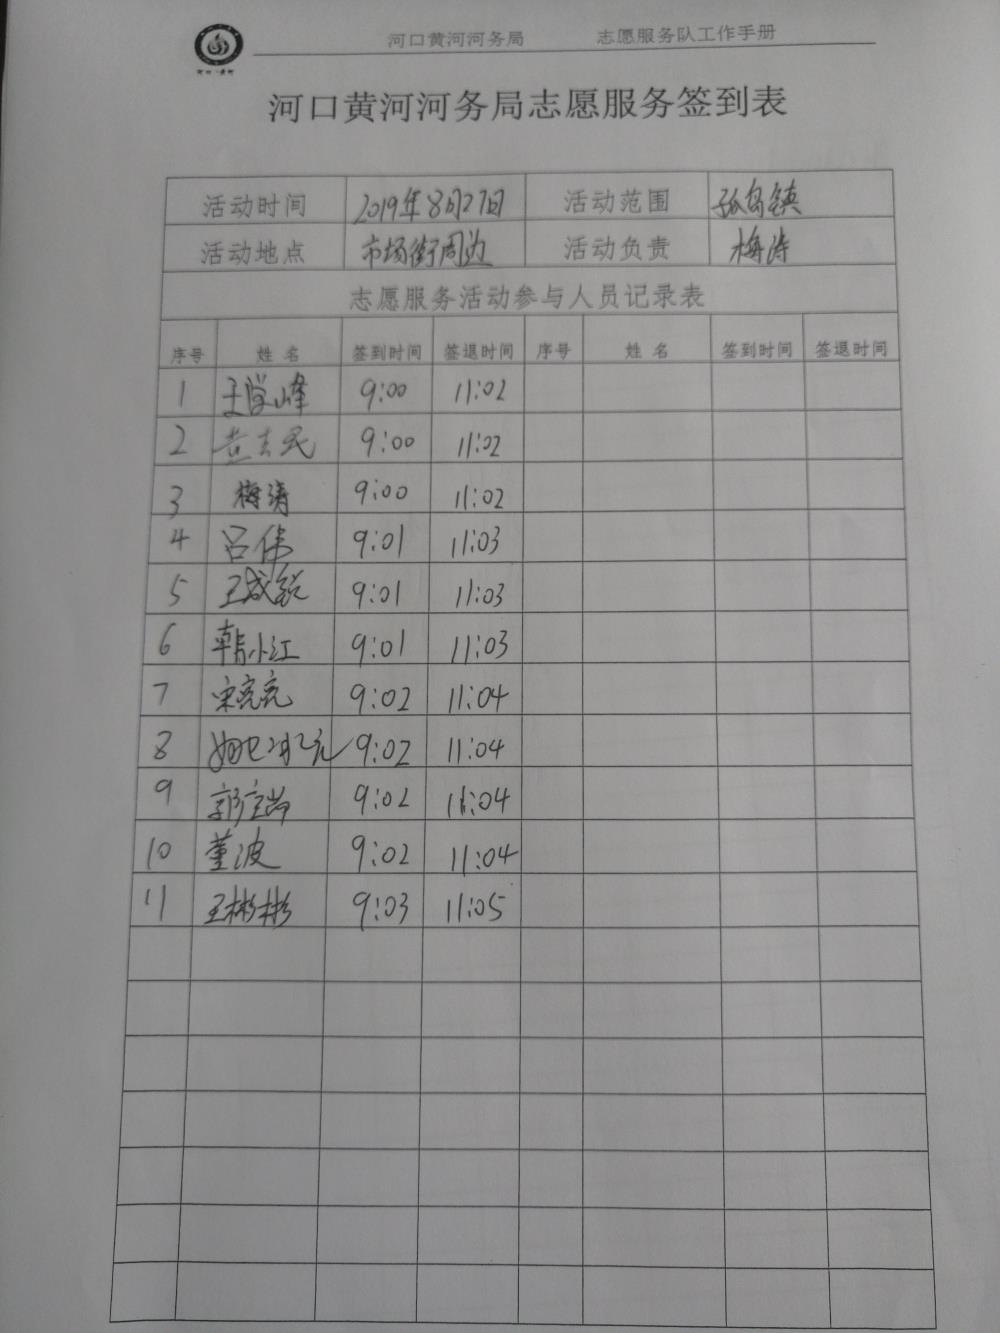 河口黄河河务局 志愿服务队工作手册
河口黄河河务局志愿服务签到表
活动时间 2019年8月27日 活动范围 孤岛镇
活动地点 市场街周边 活动负责 梅涛
志愿服务活动参与人员记录表
序号 姓名 签到时间 签退时间 序号 姓名 签到时间 签退时间
1 王学峰 9:00 11:02
2 9:00 11:02
3 梅涛 9:00 11:02
4 吕伟 9:01 11:03
5 9:01 11:03
6 韩小江 9:01 11:03
7 宋亮亮 9:02 11:04
8 9:02 11:04
9 9:02 11:04
10 董波 9:02 11:04
11 王彬彬 9:03 11:05